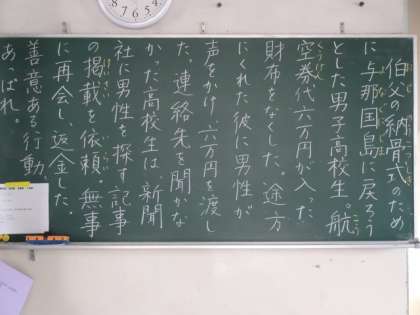 伯父の納骨式のため
に与那国島に戻ろう
とした男子高校生。航
空券代六万円が入った
財布をなくした。途方
にくれた彼に男性が
声をかけ、六万円を渡し
た。連絡先を聞かな
かった高校生は、新聞
社に男性を探す記事
の掲載を依頼。無事
に再会し、返金した。
善意ある行動、
あっぱれ。